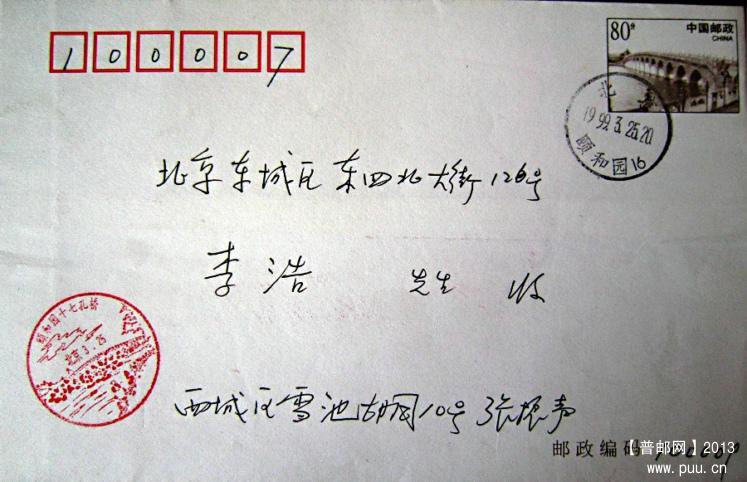 100007
80分
中国邮政
CHINA
北京
1999.3.25.20
颐和园16
北京东城区东四北大街126号
李浩 先生 收
颐和园十七孔桥
北京3.25
西城区雪池胡同10号 张根声
邮政编码
【普邮网】2013
www.puu.cn